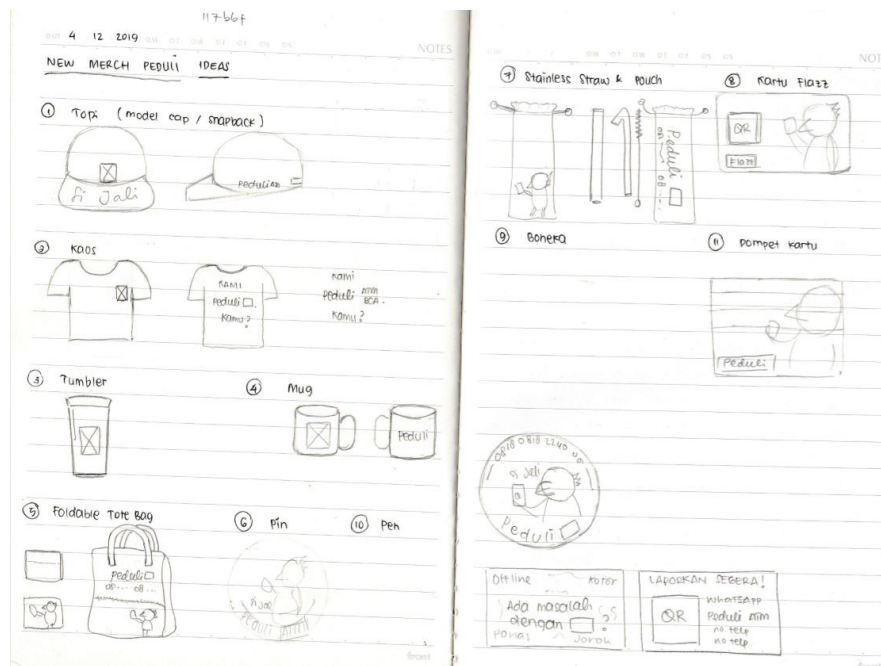 117b6f
4 12 2019
NOTES
NEW MERCH PEDULI IDEAS
① Topi (model cap / snapback)
Si Jali
Peduli
② KAOS
KAMI
Peduli
Kamu?
Kami
Peduli ATM
BCA.
Kamu?
③ Tumbler
④ Mug
Peduli
⑤ Foldable Tote Bag
Peduli
08.... 08...
⑥ Pin
Si Jali
PEDULI ATM
⑩ Pen
NOT
⑦ Stainless Straw & Pouch
Peduli
08
08.....
⑧ Kartu Flazz
QR
Flazz
⑨ Boneka
⑪ Dompet kartu
Peduli
Si Jali
Peduli
Offline
Kotor
Ada masalah
dengan ?
Panas
Jorok
LAPORKAN SEGERA!
QR
WhatsApp
Peduli ATM
no telp
no telp